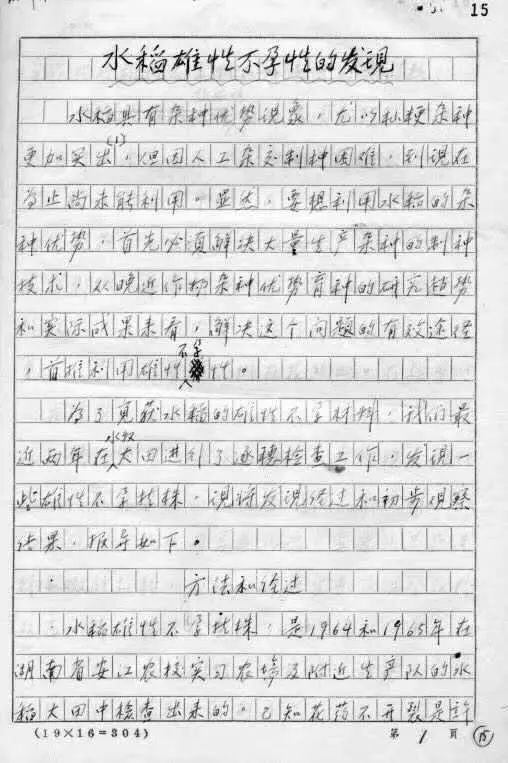 15
水稻雄性不孕性的发现
水稻具有杂种优势现象,尤以籼粳杂种
更加突出(1),但因人工杂交制种困难,到现在
为止尚未能利用。显然,要想利用水稻的杂
种优势,首先必须解决大量生产杂种的制种
技术,从晚近作物杂种优势育种的研究趋势
和实际成果来看,解决这个问题的有效途径
,首推利用雄性不孕性。
为了克获水稻的雄性不孕材料,我们最
近两年在水稻大田进行了逐穗检查工作,发现一
些雄性不孕植株,现将发现经过和初步观察
结果,报导如下。
方法和经过
水稻雄性不孕植株,是1964和1965年在
湖南省安江农校实习农场及附近生产队的水
稻大田中检查出来的。已知花药不开裂是许
(19×16=304)
第 1 页
15